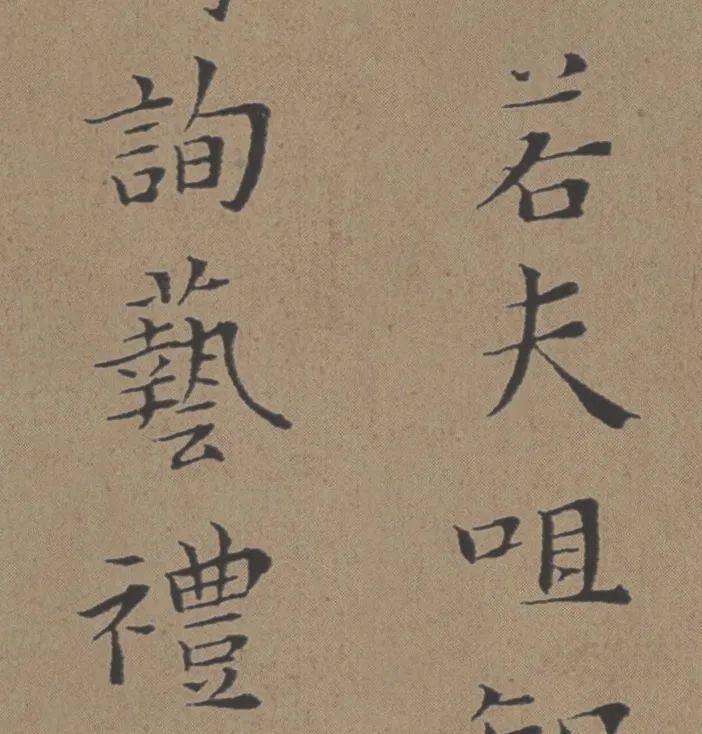 若夫咀
詢藝禮